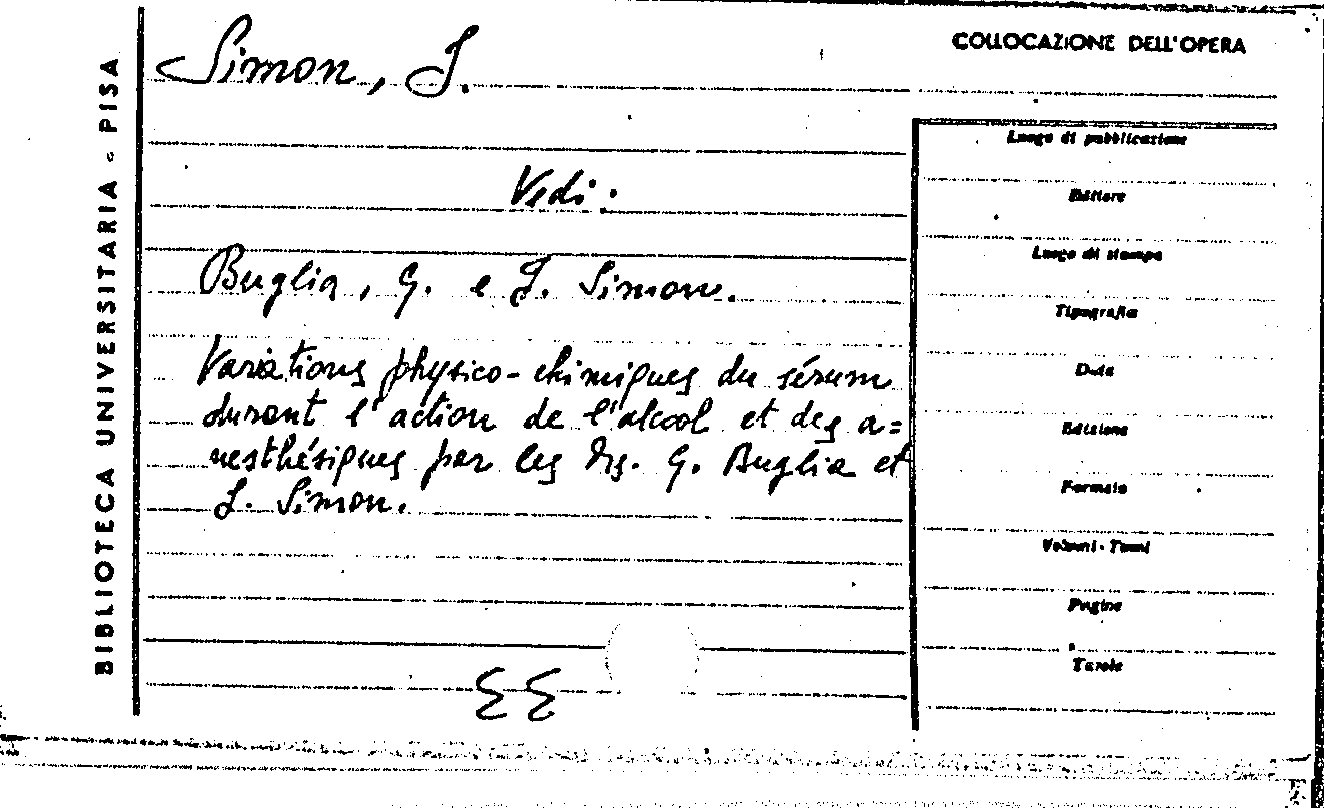 BIBLIOTECA UNIVERSITARIA - PISA
Simon, I.
Vedi:
Buglia, G. e I. Simon.
Variations physico-chimiques du sérum
durant l'action de l'alcool et des a=
nesthésiques par les Drs. G. Buglia et
I. Simon.
COLLOCAZIONE DELL'OPERA
Luogo di pubblicazione
Editore
Luogo di stampa
Tipografia
Data
Edizione
Formato
Volumi - Tomi
Pagine
Tavole